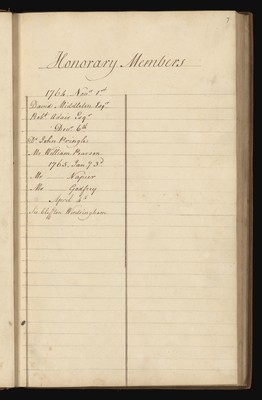 7
Honorary Members
1764. Novr. 1st
David Middleton Esqr
Robt. Adair Esqr
Decr. 6th
Dr. John Pringle
Mr. William Pearson
1765. Jany. 3d
Mr —— Napier
Mr. —— Godfrey
April 4th
Sr Clifton Wintringham